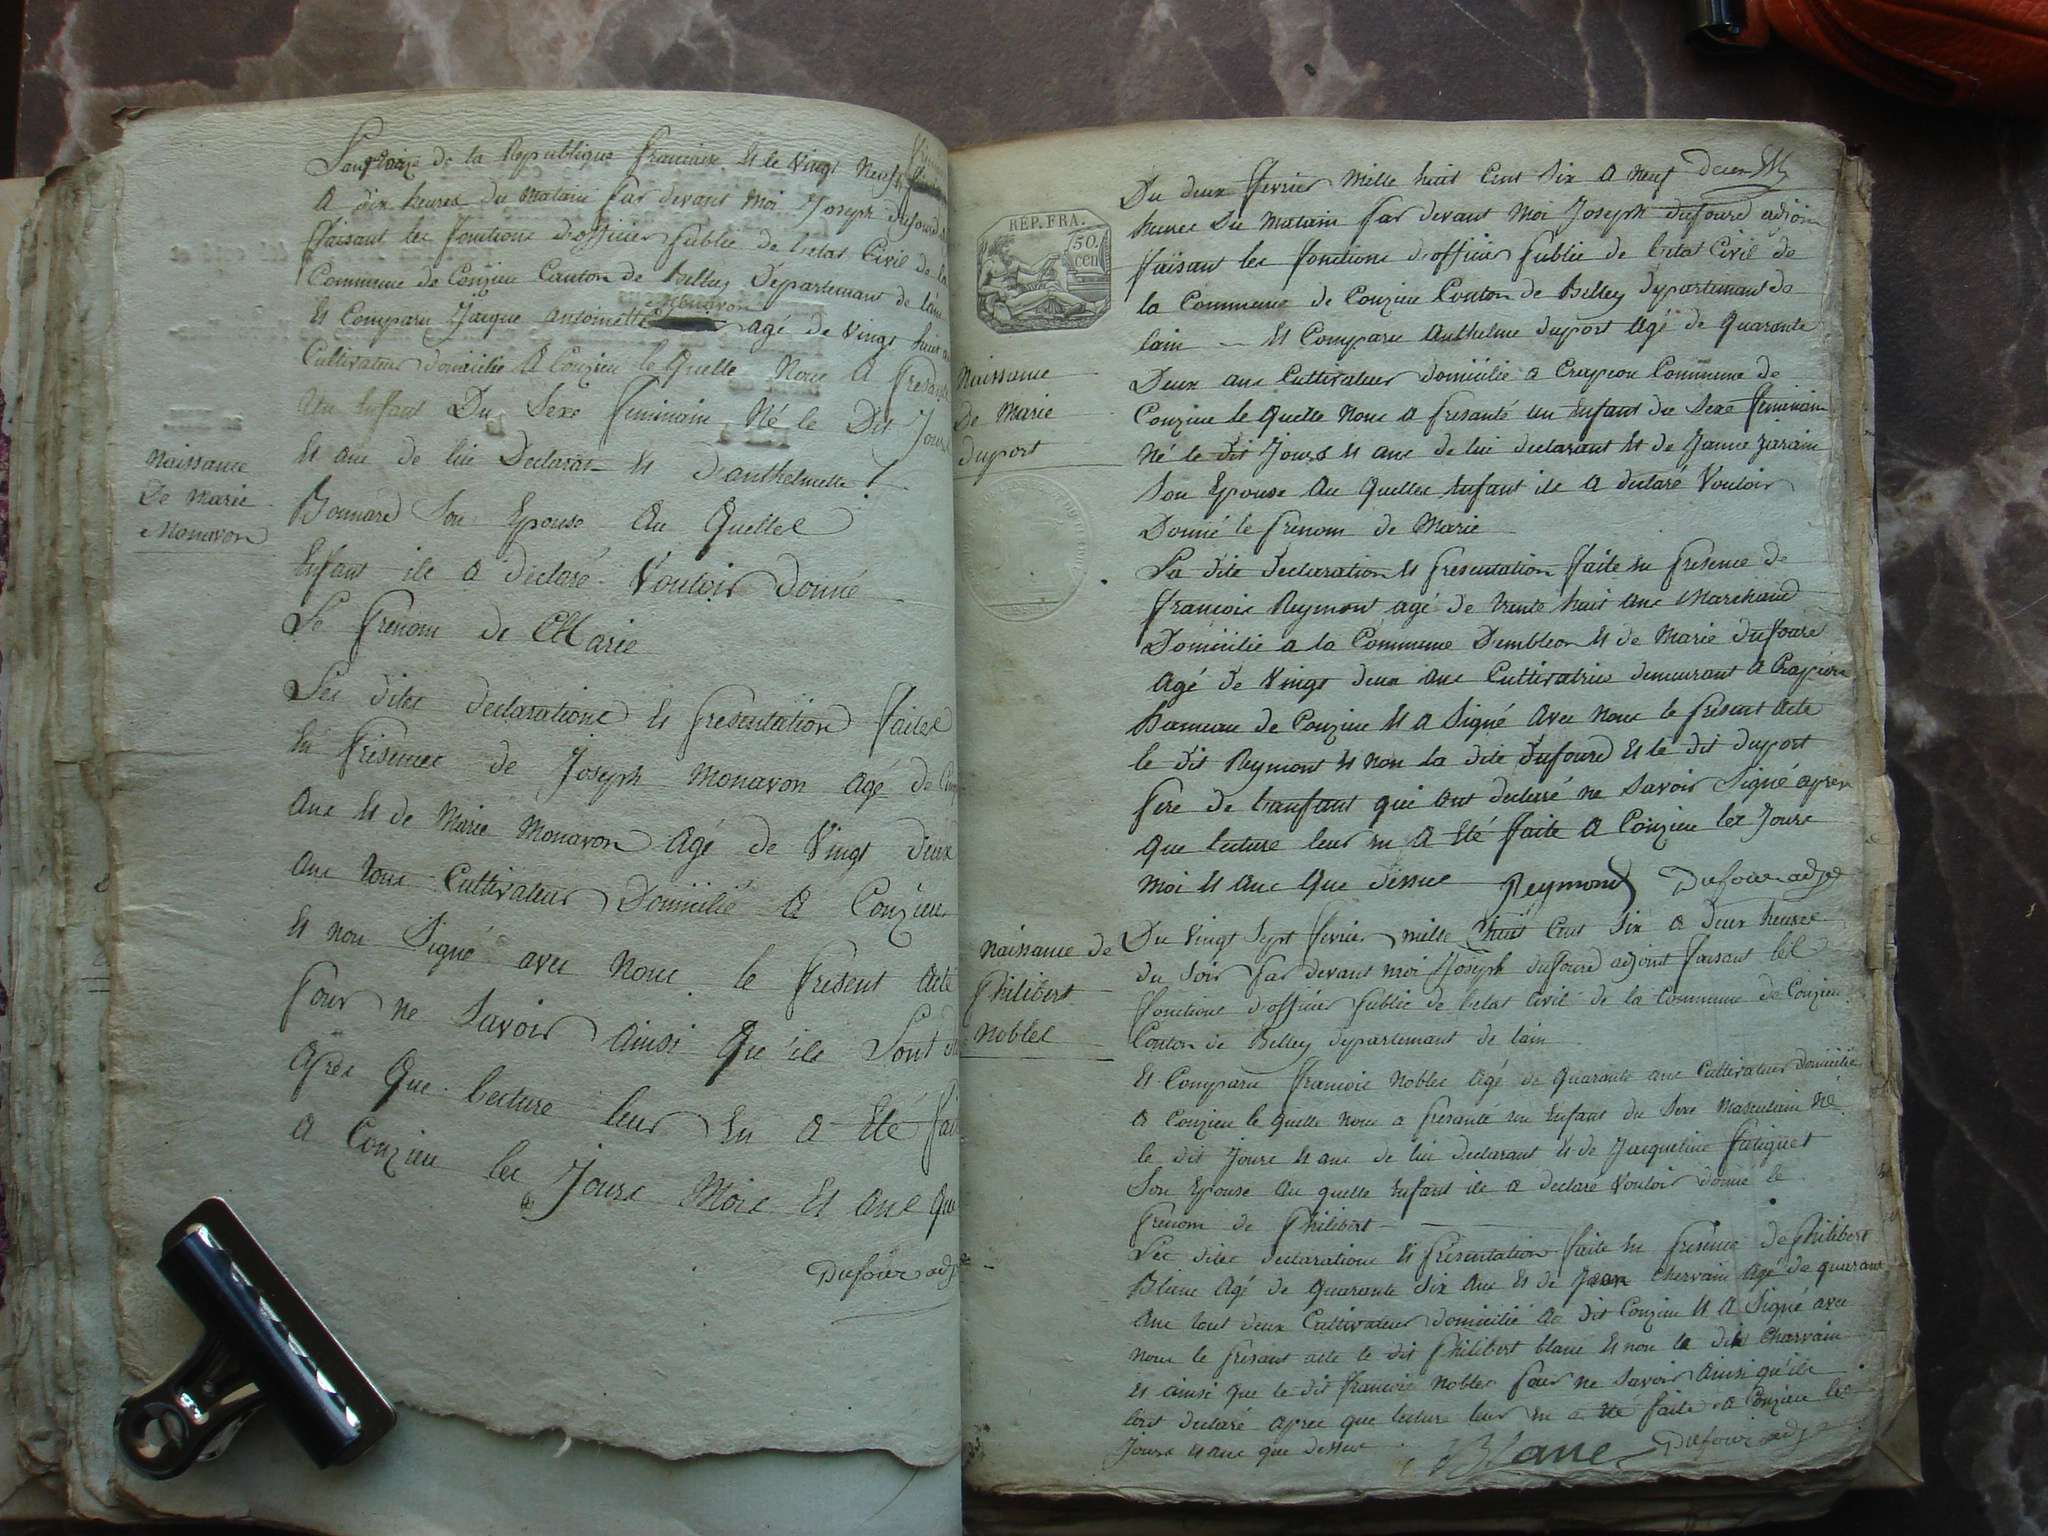 de la Republique francaise Et le Vingt Neuf
A dix heures du Matain par devant Moi Joseph dufourd
ffaisant les fonctions d'officier public de l'etat Civil de la
Commune de Conzieu Canton de Belley Departemant de l'ain
Et Comparu Jacque antoine Monavon agé de Vingt huit
Cultivateur domicilié A Conzieu le quelle Nous A
Un Enfant Du Sexe feminain Né le Dit Jours
Naissance
De Marie
Monavon
Et ans de lui Declarant Et d'anthelmette
Bonnard Son Epouse Au Quelles
Enfant ile A déclaré Vouloir donné
Le prenom de Marie
Les dites declarations Et presentation faites
En presences de Joseph Monavon agé de
Ans Et de Marie Monavon agé de Vingt deux
Ans tous Cultivateur Domicilié A Conzieu
Et non Signé avec Nous le present acte
pour ne Savoir ainsi Qu'ile Sont
apres Que lecture leur En A Eté
A Conzieu les Jours Mois Et Ans Que
Dufour adj
RÉP. FRA.
50.
cen
Naissance
De Marie
duport
Du deux fevrier Mille huit Cent Six A Neuf
heures Du Matain par devant Moi Joseph dufourd adjoin
ffaisant les fonctions d'officier public de l'etat Civil de
la Commune de Conzieu Conton de Belley departemant de
lain Et Comparu Anthelme duport Agé de Quarante
Deux ans Cultivateur domicilié a Crapeou Commune de
Conzieu le Quelle Nous A presanté un Enfant du Sexe feminain
Né le dit Jours Et ans de lui declarant Et de Janne
Son Epouse Au Quelles Enfant ile A declaré Vouloir
Donné le prenom de Marie
La dite declaration Et presentation faite En presence de
francois Reymont agé de trente huit ans Marchand
Domicilié a la Commune Dembleon Et de Marie dufourd
Agé de Vingt deux ans Cultivatrice demeurant A
hameau de Conzieu Et A Signé Avec Nous le present acte
le dit Reymont Et non la dite Dufourd Et le dit duport
pere de l'anfant qui ont declaré ne Savoir Signé apres
que lecture leur en A Eté faite A Conzieu les Jours
Moi Et ans Que dessus Reymond Dufour adj
Naissance de
Philibert
Nobles
Du Vingt Sept fevrier mille huit Cent Six A deux heures
du Soir par devant moi Joseph dufourd adjoint faisant les
fonctions d'officier public de l'etat Civil de la Commune de Conzieu
Conton de Belley departemant de lain
Et Comparu francois Nobles Agé de Quarante ans Cultivateur domicilié
A Conzieu le quelle nous a presanté un Enfant du Sexe Masculain Né
le dit Jours Et ans de lui declarant Et de Jacqueline
Son Epouse Au quelle Enfant ile A declaré Vouloir donné le
prenom de Philibert
Les dites declarations Et presentation faite En presence de Philibert
Blanc Agé de Quarante Six Ans Et de Jean Chervain Agé de quarant
Ans tout deux Cultivateur domicilié Au dit Conzieu Et A Signé avec
nous le presant acte le dit Philibert blanc Et non le dit Charvain
Et ainsi que le dit francois Nobles pour ne Savoir Ainsi qu'ile
lont declaré apres que lecture leur En a Eté faite a Conzieu les
Jours Et ans que dessus
Blanc Dufour adj